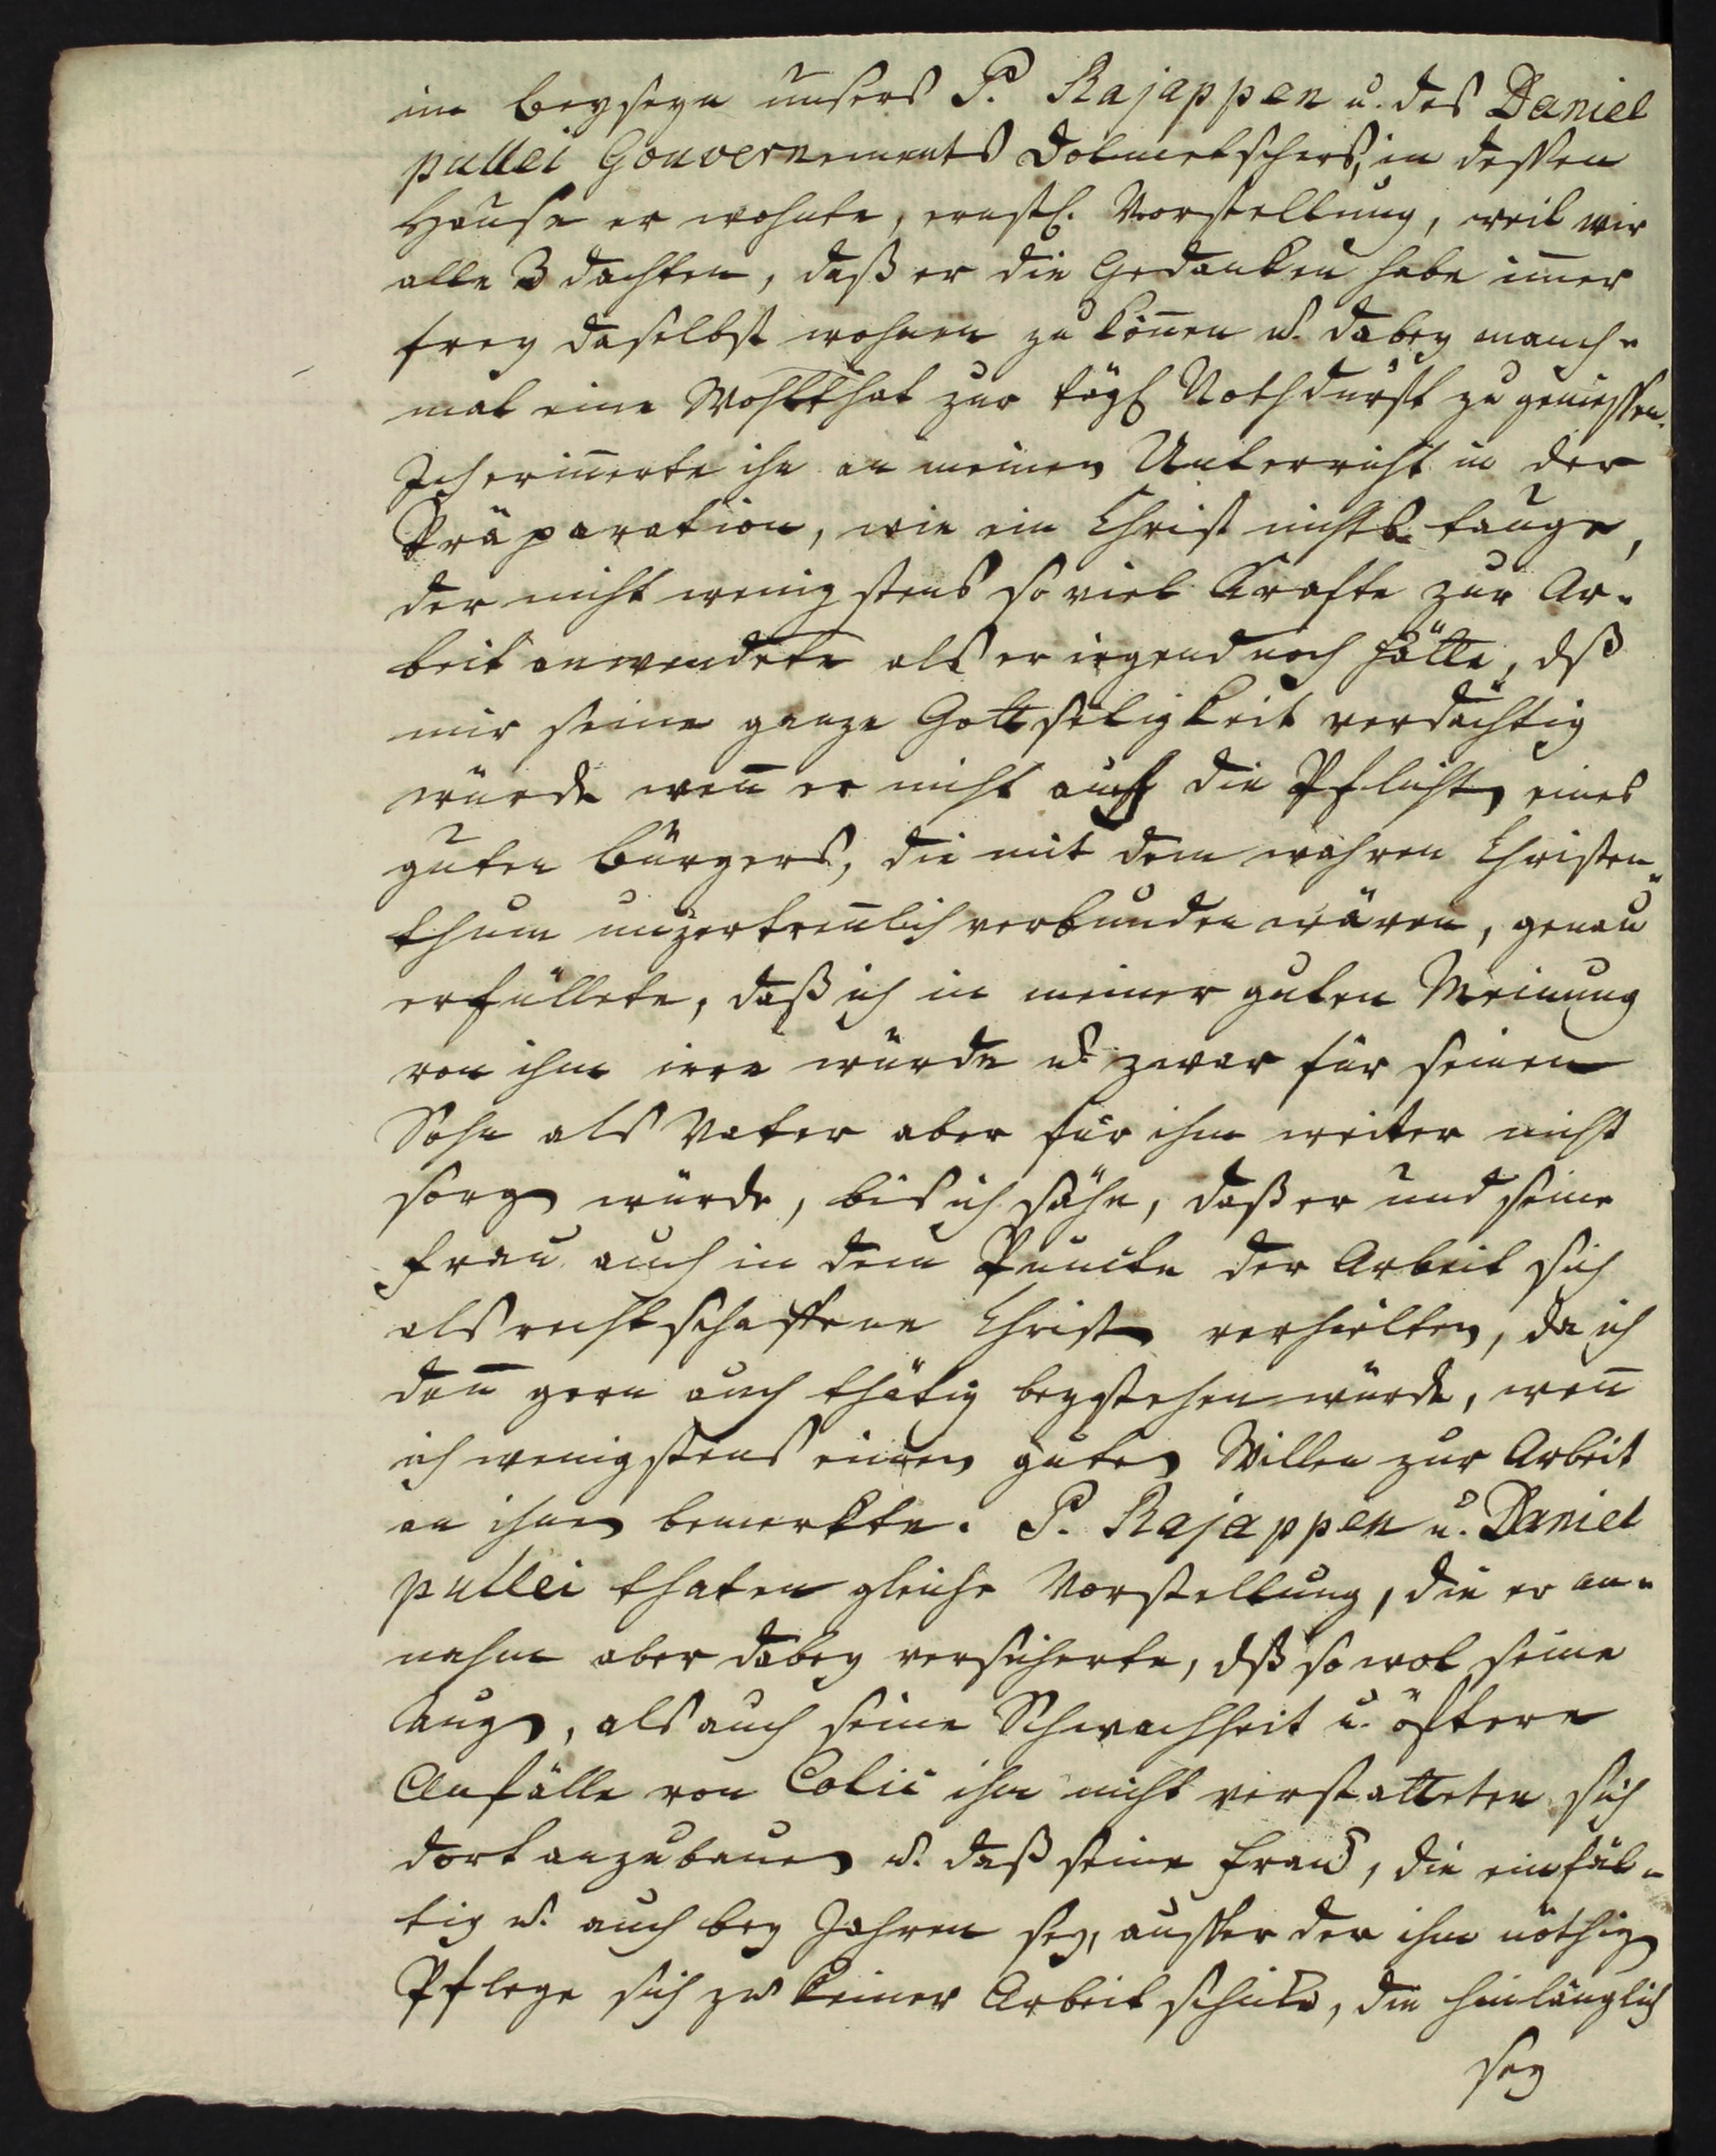 im beyseyn unsers P. Rajappen u. des Daniel
pullei Gouvernements Dolmetschers, in dessen
Hause er wohnte, ernstl. Vorstellung, weil wir
alle 3 dachten, daß er die Gedanken habe im̅er
frey daselbst wohnen zu kön̅en u. dabey manch-
mal eine Wohlthat zur tägl Nothdurft zu geniessen.
Ich erin̅erte ihn an meinen Unterricht in der
Präparation, wie ein Christ nichts tauge,
der nicht wenigstens so viel Krafte zur Ar-
beit anwendete als er irgend noch hätte, dß
mir seine ganze Gottseligkeit verdächtig
würde wen̅ er nicht auch die Pflichten eines
guten Bürgers, die mit dem wahren Christen-
thum unzertren̅lich verbunden wären, genau
erfüllete, daß ich in meiner guten Meinung
von ihm irre würde u. zwar für seinen
Sohn als Vater aber für ihm weiter nicht
sorgen würde, bis ich sähe, daß er und seine
Frau auch in dem Puncte der Arbeit sich
als rechtschaffene Christen verhielten, da ich
dan̅ gern auch thätig beystehen würde, wen̅
ich wenigstens einen guten Willen zur Arbeit
an ihnen bemerkte. P. Rajappen u. Daniel
pullei thaten gleiche Vorstellung, die er an-
nahm aber dabey versicherte, dß so wol seine
Augen, als auch seine Schwachheit u. öftere
Anfälle von Colic ihm nicht verstatteten sich
dort anzubauen u. daß seine Frau, die einfäl-
tig u. auch bey Jahren sey, ausser der ihm nöthigen
Pflege sich zu keiner Arbeit schicke, die hinlänglich
sey